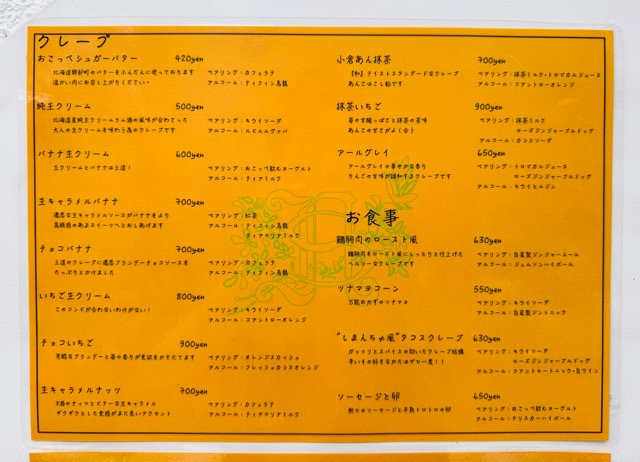 クレープ
おこっぺシュガーバター 420yen
北海道興部町のバターをふんだんに使っております
温かい内にお召し上がりください。
ペアリング：カフェラテ
アルコール：ティフィン烏龍
純生クリーム 500yen
北海道産純生クリームラム酒の風味が合わさった
大人の生クリームを味わう為のクレープです
ペアリング：キウイソーダ
アルコール：ルビルルグッパ
バナナ生クリーム 600yen
生クリームとバナナは王道！
ペアリング：おこっぺ飲むヨーグルト
アルコール：ティアミルク
生キャラメルバナナ 700yen
濃厚な生キャラメルソースがバナナをより
高級感のあるスイーツへとおしあげます
ペアリング：紅茶
アルコール：ティフィン烏龍
ティアマリアミルク
チョコバナナ 700yen
王道のクレープに濃厚グランデーチョコソースを
たっぷりとかけました
ペアリング：カフェラテ
アルコール：ティフィン烏龍
いちご生クリーム 800yen
このコンビが合わないわけがない！
ペアリング：キウイソーダ
アルコール：コアントローオレンジ
チョコいちご 900yen
芳醇なグランデーと苺の香りが食欲をかきたてます
ペアリング：オレンジスカッシュ
アルコール：フレッシュカシスオレンジ
生キャラメルナッツ 700yen
3種のナッツとビターな生キャラメル
ザクザクとした食感がまた良いアクセント
ペアリング：カフェラテ
アルコール：ティアマリアミルク
小倉あん抹茶 700yen
『和』テイストスタンダードなクレープ
あんこはこし餡です
ペアリング：抹茶ミルク・トロピカルジュース
アルコール：コアントローオレンジ
抹茶いちご 900yen
苺の甘酸っぱさと抹茶の苦味
あんこの甘さがよく合う
ペアリング：抹茶ミルク
ローズジンジャーグルドッグ
アルコール：カシスソーダ
アールグレイ 650yen
アールグレイの華やかな香り
りんごの甘味が調和するクレープです
ペアリング：トロピカルジュース
ローズジンジャーグルドッグ
アルコール：キウイとルジン
お食事
鶏胸肉のロースト風 630yen
鶏胸肉をロースト風にしっとりと仕上げた
ヘルシーなクレープです
ペアリング：自家製ジンジャーエール
アルコール：ジェムソンハイボール
ツナマヨコーン 550yen
万能おかずのツナマヨ
ペアリング：キウイソーダ
アルコール：自家製ジントニック
"しまんちゅ風"タコスクレープ 630yen
ガッツリとスパイスの効いたクレープ琉球
辛いもの好きなかたはぜひ一度！！
ペアリング：キウイソーダ
ローズジンジャーグルドッグ
アルコール：コアントロートニック・白ワイン
ソーセージと卵 650yen
熱々のソーセージと半熟トロトロの卵
ペアリング：おこっぺ飲むヨーグルト
アルコール：タリスカーハイボール